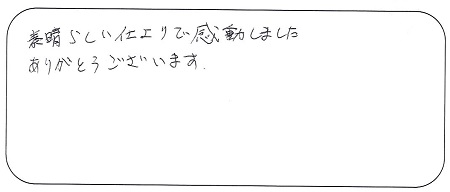 素晴らしい仕上りで感動しました
ありがとうございます.